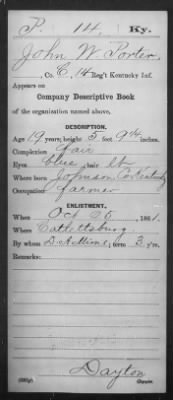 P. 14, Ky.
John W Porter
, Co. C, 14 Reg't Kentucky Inf.
Appears on
Company Descriptive Book
of the organization named above.
DESCRIPTION.
Age 19 years; height 5 feet 9¼ inches.
Complexion fair
Eyes blue; hair lt
Where born Johnson Co Kentucky
Occupation farmer
ENLISTMENT.
When Oct 25, 1861.
Where Catlettsburg
By whom ; term 3 y'rs.
Remarks:
Dayton
Copyist.